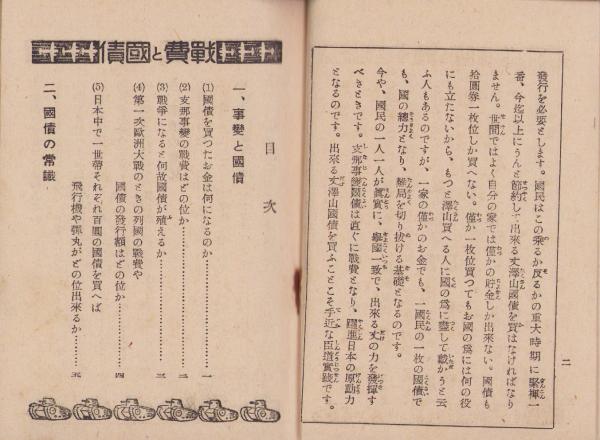 發行を必要とします。國民はこの乘るか反るかの重大時期に緊褌一
番、今迄以上にうんと節約して出來る丈澤山國債を買はなければなり
ません。世間ではよく自分の家では僅かの貯金しか出來ない。國債も
拾圓券一枚位しか買へない。僅か一枚位買つてもお國の爲には何の役
にも立たないから、もつと澤山買へる人に國の爲に盡して戴かうと云
ふ人もあるのですが、一家の僅かのお金でも、一國民の一枚の國債で
も、國の總力となり、難局を切り拔ける基礎となるのです。
今や、國民の一人一人が眞實に、擧國一致で、出來る丈の力を發揮す
べきときです。支那事變國債は直ぐに戰費となり、躍進日本の原動力
となるのです。出來る丈澤山國債を買ふことこそ手近な臣道實踐です。
二
戰費と國債
目次
一、事變と國債
(1) 國債を買つたお金は何になるのか…………一
(2) 支那事變の戰費はどの位か…………二
(3) 戰爭になると何故國債が殖えるか…………三
(4) 第一次歐洲大戰のときの列國の戰費や
國債の發行額はどの位か…………四
(5) 日本中で一世帶それぞれ百圓の國債を買へば
飛行機や彈丸がどの位出來るか…………五
二、國債の常識